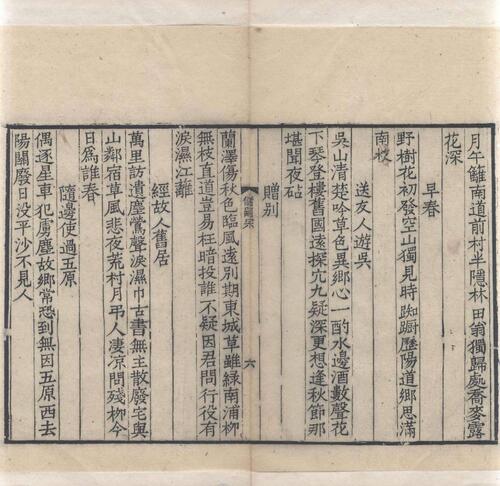 月午籬南道前村半隱林田翁獨歸處喬麥露
花深
早春
野樹花初發空山獨見時踟躕歷陽道鄉思滿
南枝
送友人遊吳
吳山清楚吟草色異鄉心一酌水邊酒數聲花
下琴登樓舊國遠探穴九疑深更想逢秋節那
堪聞夜砧
贈別
蘭澤傷秋色臨風遠別期東城草雖綠南浦柳
儲嗣宗 六
無枝直道豈易枉暗投誰不疑因君問行役有
淚濕江離
經故人舊居
萬里訪遺塵鶯聲淚濕巾古書無主散廢宅與
山鄰宿草風悲夜荒村月弔人淒涼問殘柳今
日爲誰春
隨邊使過五原
偶逐星車犯虜塵故鄉常恐到無因五原西去
陽關廢日没平沙不見人